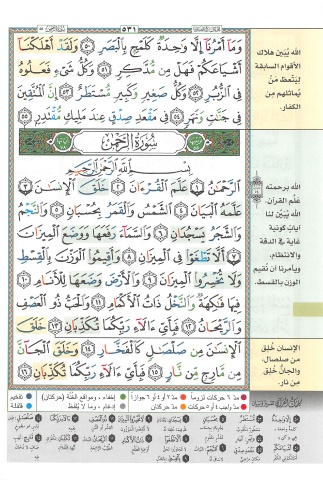 ٥٣١
وَمَآ أَمْرُنَآ إِلَّا وَٰحِدَةٌ كَلَمْحٍۭ بِٱلْبَصَرِ ٥٠ وَلَقَدْ أَهْلَكْنَآ
أَشْيَاعَكُمْ فَهَلْ مِن مُّدَّكِرٍ ٥١ وَكُلُّ شَىْءٍ فَعَلُوهُ
فِى ٱلزُّبُرِ ٥٢ وَكُلُّ صَغِيرٍ وَكَبِيرٍ مُّسْتَطَرٌ ٥٣ إِنَّ ٱلْمُتَّقِينَ
فِى جَنَّٰتٍ وَنَهَرٍ ٥٤ فِى مَقْعَدِ صِدْقٍ عِندَ مَلِيكٍ مُّقْتَدِرٍۭ ٥٥
سُورَةُ الرَّحْمَٰن
بِسْمِ ٱللَّهِ ٱلرَّحْمَٰنِ ٱلرَّحِيمِ
ٱلرَّحْمَٰنُ ١ عَلَّمَ ٱلْقُرْءَانَ ٢ خَلَقَ ٱلْإِنسَٰنَ ٣
عَلَّمَهُ ٱلْبَيَانَ ٤ ٱلشَّمْسُ وَٱلْقَمَرُ بِحُسْبَانٍ ٥ وَٱلنَّجْمُ
وَٱلشَّجَرُ يَسْجُدَانِ ٦ وَٱلسَّمَآءَ رَفَعَهَا وَوَضَعَ ٱلْمِيزَانَ
٧ أَلَّا تَطْغَوْا۟ فِى ٱلْمِيزَانِ ٨ وَأَقِيمُوا۟ ٱلْوَزْنَ بِٱلْقِسْطِ
وَلَا تُخْسِرُوا۟ ٱلْمِيزَانَ ٩ وَٱلْأَرْضَ وَضَعَهَا لِلْأَنَامِ ١٠
فِيهَا فَٰكِهَةٌ وَٱلنَّخْلُ ذَاتُ ٱلْأَكْمَامِ ١١ وَٱلْحَبُّ ذُو ٱلْعَصْفِ
وَٱلرَّيْحَانُ ١٢ فَبِأَىِّ ءَالَآءِ رَبِّكُمَا تُكَذِّبَانِ ١٣ خَلَقَ
ٱلْإِنسَٰنَ مِن صَلْصَٰلٍ كَٱلْفَخَّارِ ١٤ وَخَلَقَ ٱلْجَآنَّ
مِن مَّارِجٍ مِّن نَّارٍ ١٥ فَبِأَىِّ ءَالَآءِ رَبِّكُمَا تُكَذِّبَانِ ١٦
الله يُبَيِّن هلاك
الأقوام السابقة
ليتّعظ مَنْ
يماثلهم مِن
الكفار.
الله برحمته
علَّم القرآن.
الله يُبيِّن لنا
آيات كونية
غاية في الدقة
والانتظام،
ويأمرنا أن نقيم
الوزن بالقسط.
الإنسان خُلِق
من صلصال،
والجانُّ خُلِق
مِن نار.
مدّ ٦ حركات لزوماً
مدّ ٢ أو ٤ أو ٦ جوازاً
إخفاء، ومواقع الغُنَّة (حركتان)
تفخيم
مدّ واجب ٤ أو ٥ حركات
مدّ حركتان
إدغام، وما لا يُلفَظ
قلقلة